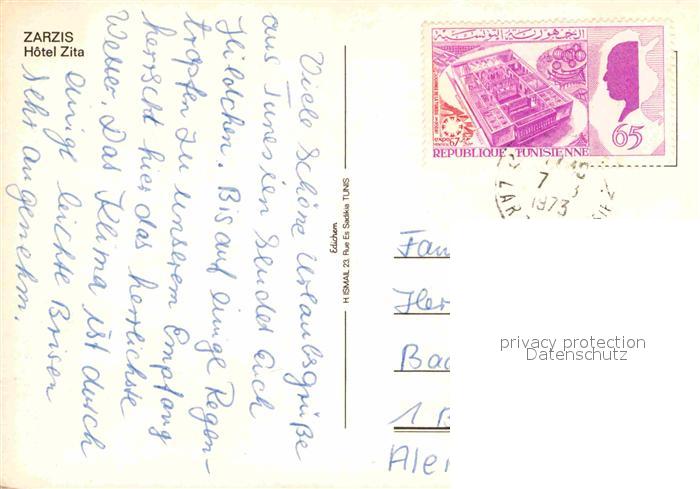 ZARZIS
Hôtel Zita
Viele schöne Urlaubsgrüße
aus Tunesien sendet Euch
Hildchen. Bis auf einige Regen-
tropfen zu unserem Empfang
herrscht hier das herrlichste
Wetter. Das Klima ist durch
einige leichte Brisen
sehr angenehm.
Edichem
H. ISMAIL 23. Rue Es Sadikia TUNIS
الجمهورية التونسية
67
65
REPUBLIQUE TUNISIENNE
7
1973
ZAR
Fam
Her
Bad
1 B
Alem
privacy protection
Datenschutz